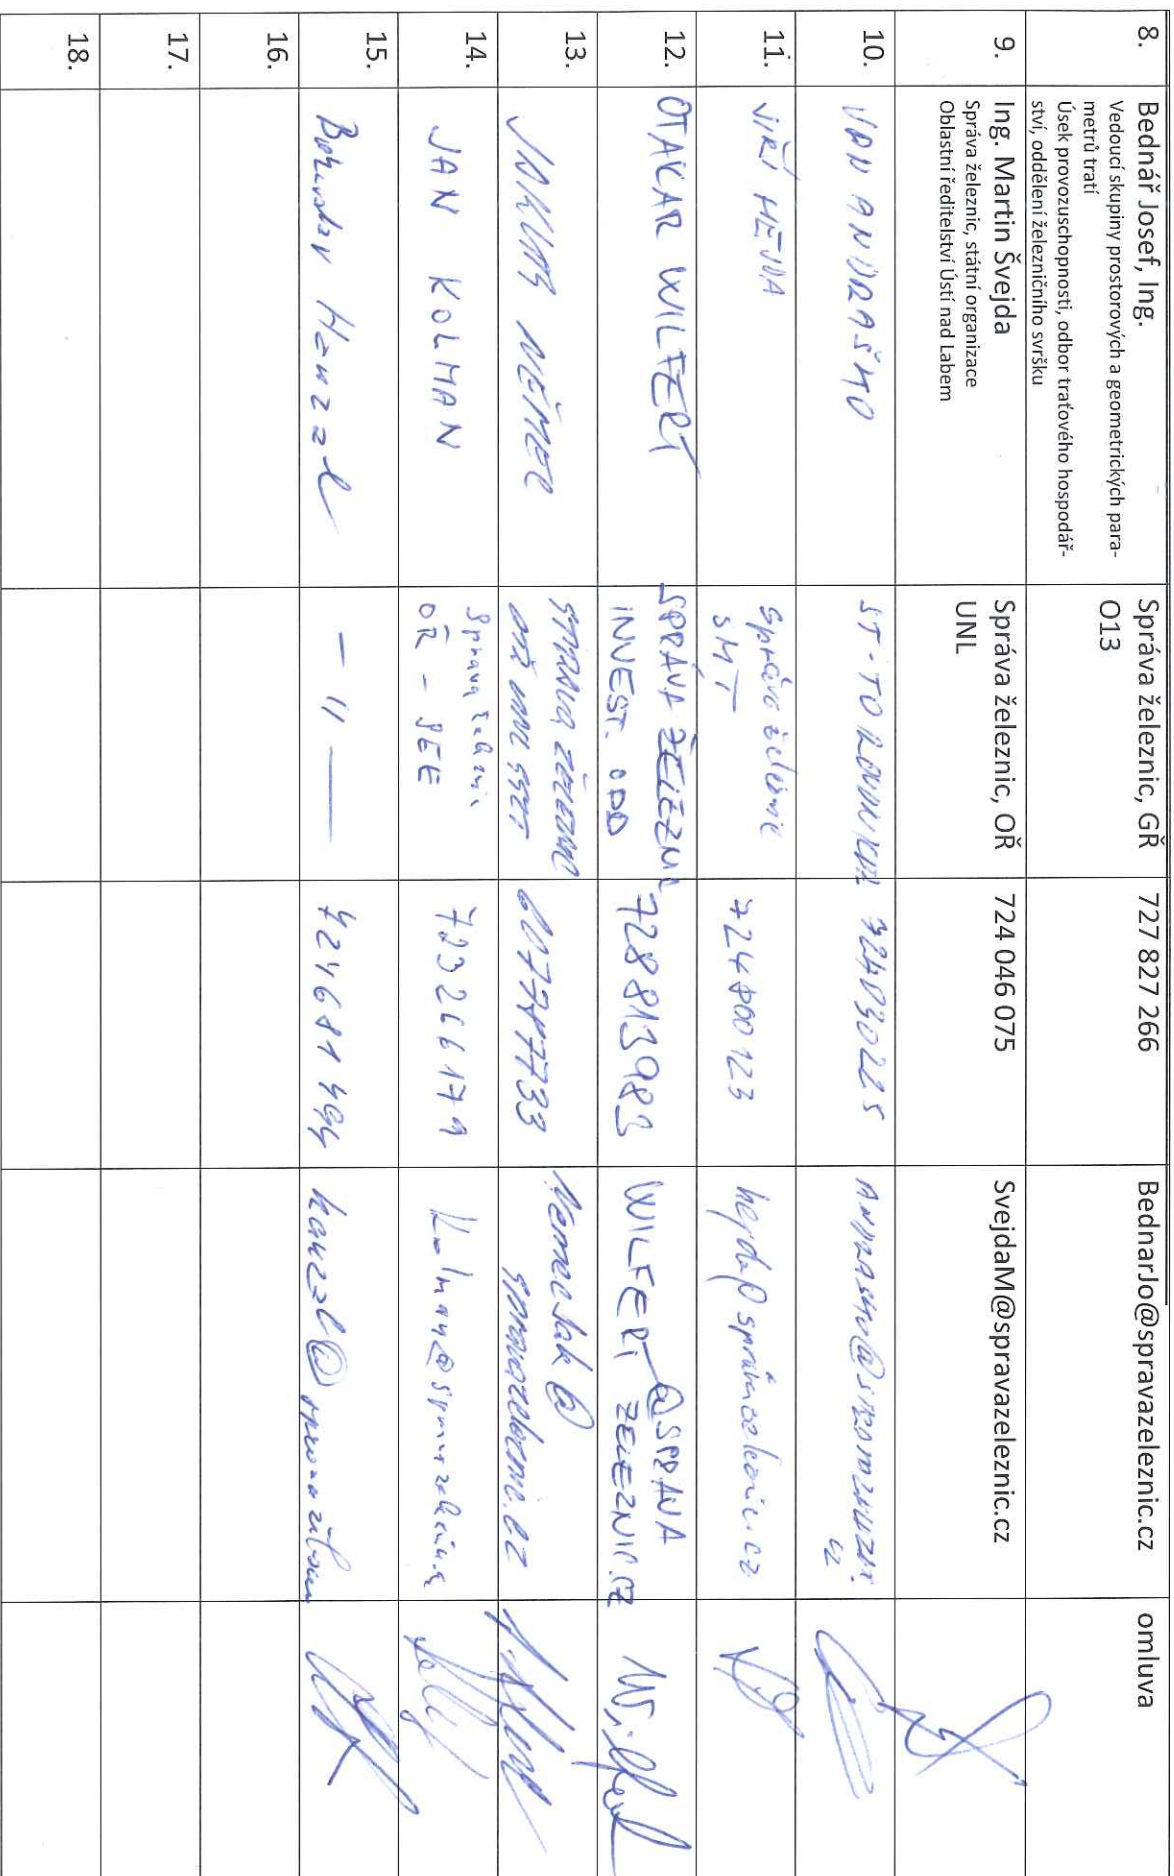 8.
Bednář Josef, Ing.
Vedoucí skupiny prostorových a geometrických para-
metrů tratí
Úsek provozuschopnosti, odbor traťového hospodář-
ství, oddělení železničního svršku
Správa železnic, GŘ
O13
727 827 266
BednarJo@spravazeleznic.cz
omluva
9.
Ing. Martin Švejda
Správa železnic, státní organizace
Oblastní ředitelství Ústí nad Labem
Správa železnic, OŘ
UNL
724 046 075
SvejdaM@spravazeleznic.cz
10.
11.
JIŘÍ HEJDA
Správa železnic
SMT
724800123
hejda@spravazeleznic.cz
12.
OTAKAR WILFERT
SPRÁVA ŽELEZNIC
INVEST. ODD
728813983
WILFERT@SPRAVA
ZELEZNIC.CZ
13.
607787733
NemecJak@
spravazeleznic.cz
14.
JAN KOLMAN
Správa železnic
OŘ - SEE
723266179
15.
Hanzal
- 11 -
724681494
hanzal@
16.
17.
18.